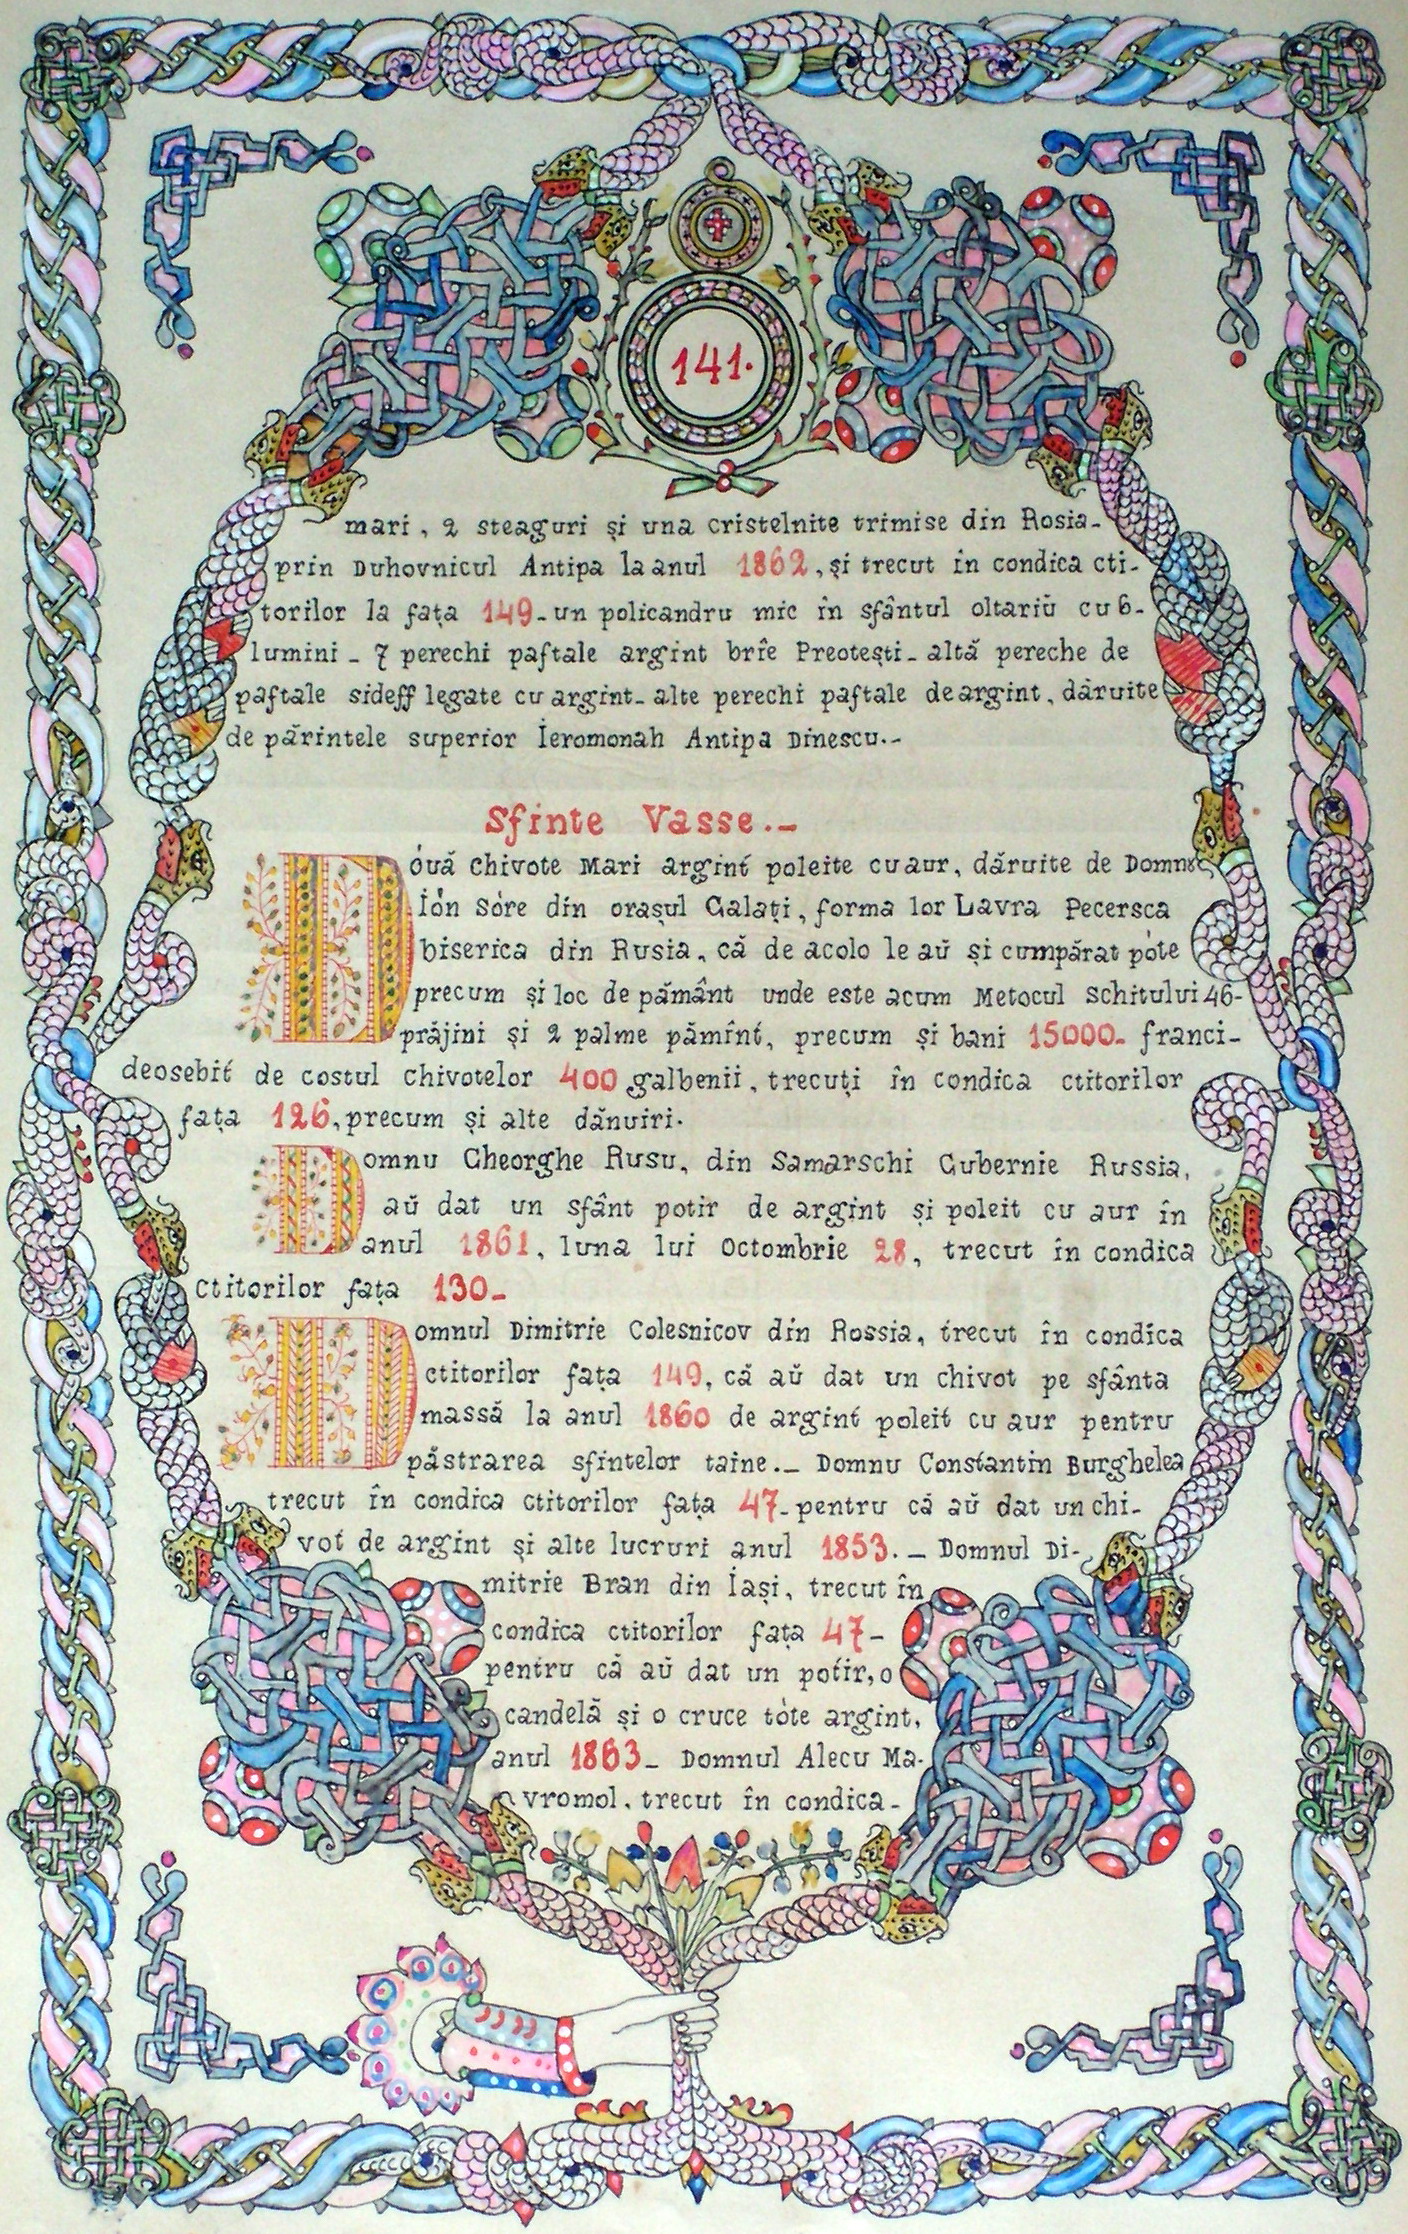 141.
mari, 2 steaguri și una cristelnite trimise din Rosia-
prin Duhovnicul Antipa la anul 1862, și trecut în condica cti-
torilor la fața 149- un policandru mic în sfântul oltariŭ cu 6-
lumini - 7 perechi paftale argint brîe Preotești- altă pereche de
paftale sideff legate cu argint- alte perechi paftale de argint, dăruite
de părintele superior Ieromonah Antipa Dinescu.-
Sfinte Vasse.-
Două Chivote Mari argint poleite cu aur, dăruite de Domnu
Iòn Sòre din orașul Galați, forma lor Lavra Pecersca
biserica din Rusia, că de acolo le aŭ și cumpărat pòte
precum și loc de pământ unde este acum Metocul Schitului 46-
prăjini și 2 palme pămînt, precum și bani 15000- franci-
deosebit de costul Chivotelor 400 galbenii, trecuți în condica ctitorilor
fața 126, precum și alte dănuiri.
Domnu Gheorghe Rusu, din Samarschi Gubernie Russia,
aŭ dat un sfânt potir de argint și poleit cu aur în
anul 1861, luna lui Octombrie 28, trecut în condica
ctitorilor fața 130-
Domnul Dimitrie Colesnicov din Rossia, trecut în condica
ctitorilor fața 149, că aŭ dat un chivot pe sfânta
massă la anul 1860 de argint poleit cu aur pentru
păstrarea sfintelor taine.- Domnu Constantin Burghelea
trecut în condica ctitorilor fața 47- pentru că aŭ dat un chi-
vot de argint și alte lucruri anul 1853.- Domnul Di-
mitrie Bran din Iași, trecut în
condica ctitorilor fața 47-
pentru că aŭ dat un potir, o
candelă și o cruce tòte argint,
anul 1863- Domnul Alecu Ma-
vromol, trecut în condica-